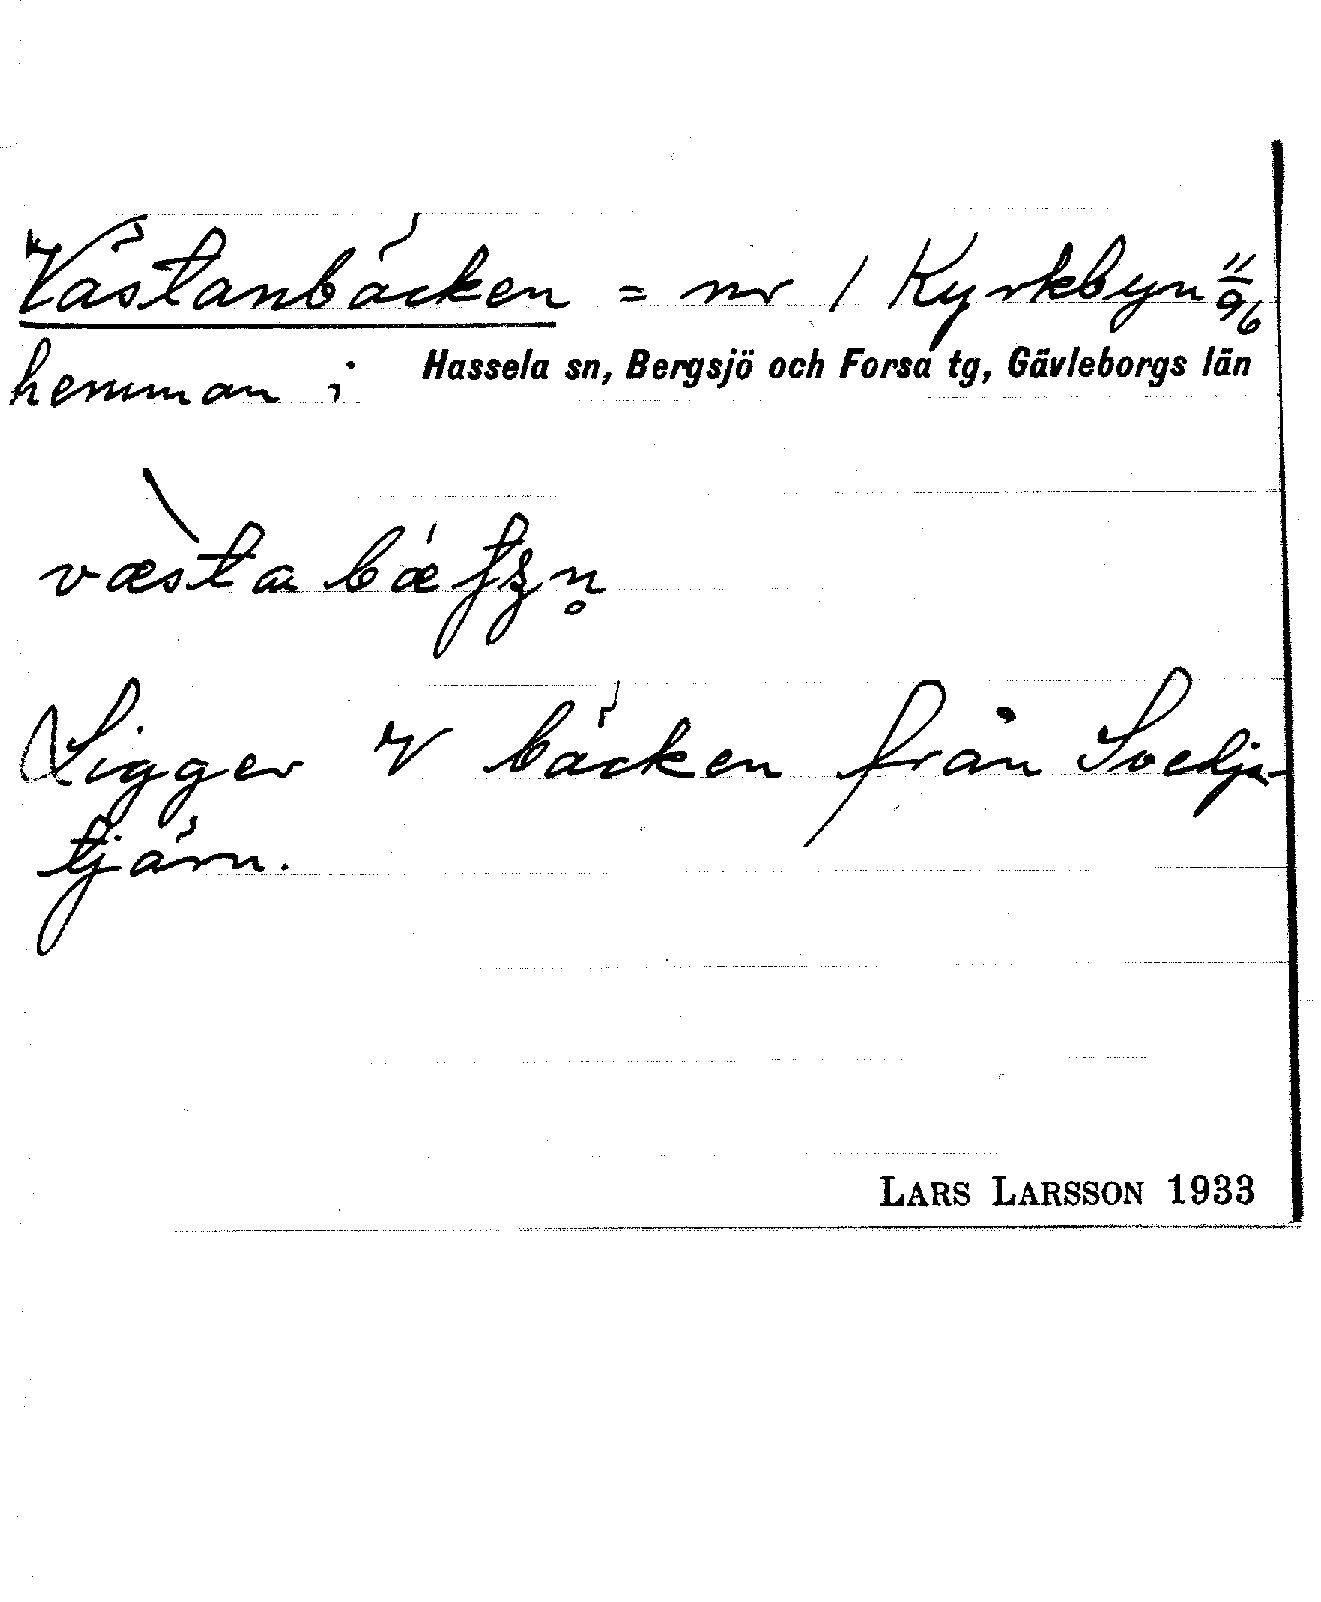 Västanbäcken = nr 1 Kyrkbyn
hemman i Hassela sn, Bergsjö och Forsa tg, Gävleborgs län
Ligger V bäcken från Svedje-
tjärn.
LARS LARSSON 1933